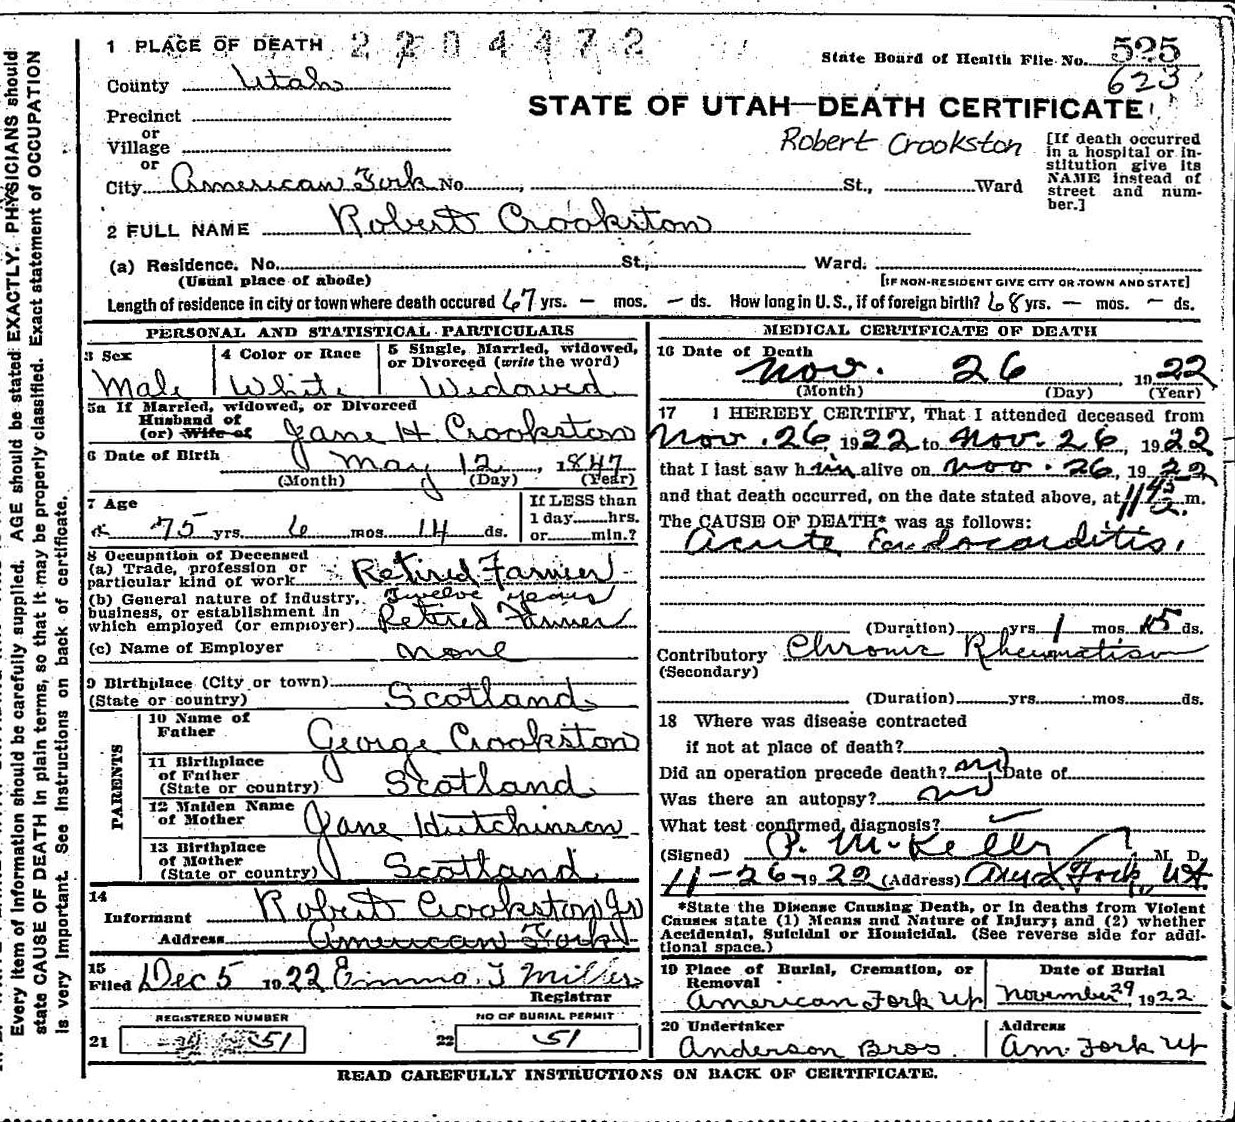 1 PLACE OF DEATH 2204472
State Board of Health File No. 525
623
County Utah
STATE OF UTAH—DEATH CERTIFICATE
Precinct
or
Village
or
City American Fork No. St., Ward
Robert Crookston
[If death occurred
in a hospital or in-
stitution give its
NAME instead of
street and num-
ber.]
2 FULL NAME Robert Crookston
(a) Residence. No. St., Ward.
(Usual place of abode)
[IF NON-RESIDENT GIVE CITY OR TOWN AND STATE]
Length of residence in city or town where death occured 67 yrs. — mos. — ds. How long in U. S., if of foreign birth? 68 yrs. — mos. — ds.
PERSONAL AND STATISTICAL PARTICULARS
3 Sex
Male
4 Color or Race
White
5 Single, Married, widowed,
or Divorced (write the word)
Widowed
5a If Married, widowed, or Divorced
Husband of
(or) Wife of Jane H Crookston
6 Date of Birth May 12, 1847
(Month) (Day) (Year)
7 Age
75 yrs. 6 mos. 14 ds.
If LESS than
1 day hrs.
or min.?
8 Occupation of Deceased
(a) Trade, profession or
particular kind of work Retired Farmer
(b) General nature of industry, Twelve years
business, or establishment in
which employed (or employer) Retired Farmer
(c) Name of Employer none
9 Birthplace (City or town)
(State or country) Scotland
PARENTS
10 Name of
Father George Crookston
11 Birthplace
of Father
(State or country) Scotland
12 Maiden Name
of Mother Jane Hutchinson
13 Birthplace
of Mother
(State or country) Scotland
14
Informant Robert Crookston Jr
Address American Fork
15
Filed Dec 5 1922 Emma T Miller
Registrar
REGISTERED NUMBER
21 51
NO OF BURIAL PERMIT
22 51
MEDICAL CERTIFICATE OF DEATH
16 Date of Death
Nov. 26, 1922
(Month) (Day) (Year)
17 I HEREBY CERTIFY, That I attended deceased from
Nov. 26, 1922 to Nov. 26, 1922
that I last saw him alive on Nov. 26, 1922
and that death occurred, on the date stated above, at 11 45 a. m.
The CAUSE OF DEATH* was as follows:
Acute Endocarditis.
(Duration) yrs. 1 mos. 15 ds.
Contributory Chronic Rheumatism
(Secondary)
(Duration) yrs. mos. ds.
18 Where was disease contracted
if not at place of death?
Did an operation precede death? no Date of
Was there an autopsy? no
What test confirmed diagnosis?
(Signed) P. M. Kelly, M. D.
11-26-1922 (Address) Amer Fork, Ut.
*State the Disease Causing Death, or in deaths from Violent
Causes state (1) Means and Nature of Injury; and (2) whether
Accidental, Suicidal or Homicidal. (See reverse side for addi-
tional space.)
19 Place of Burial, Cremation, or
Removal
American Fork Ut
Date of Burial
November 29, 1922
20 Undertaker
Anderson Bros.
Address
Am. Fork Ut
READ CAREFULLY INSTRUCTIONS ON BACK OF CERTIFICATE.
Every item of information should be carefully supplied. AGE should be stated EXACTLY. PHYSICIANS should
state CAUSE OF DEATH in plain terms, so that it may be properly classified. Exact statement of OCCUPATION
is very important. See instructions on back of certificate.